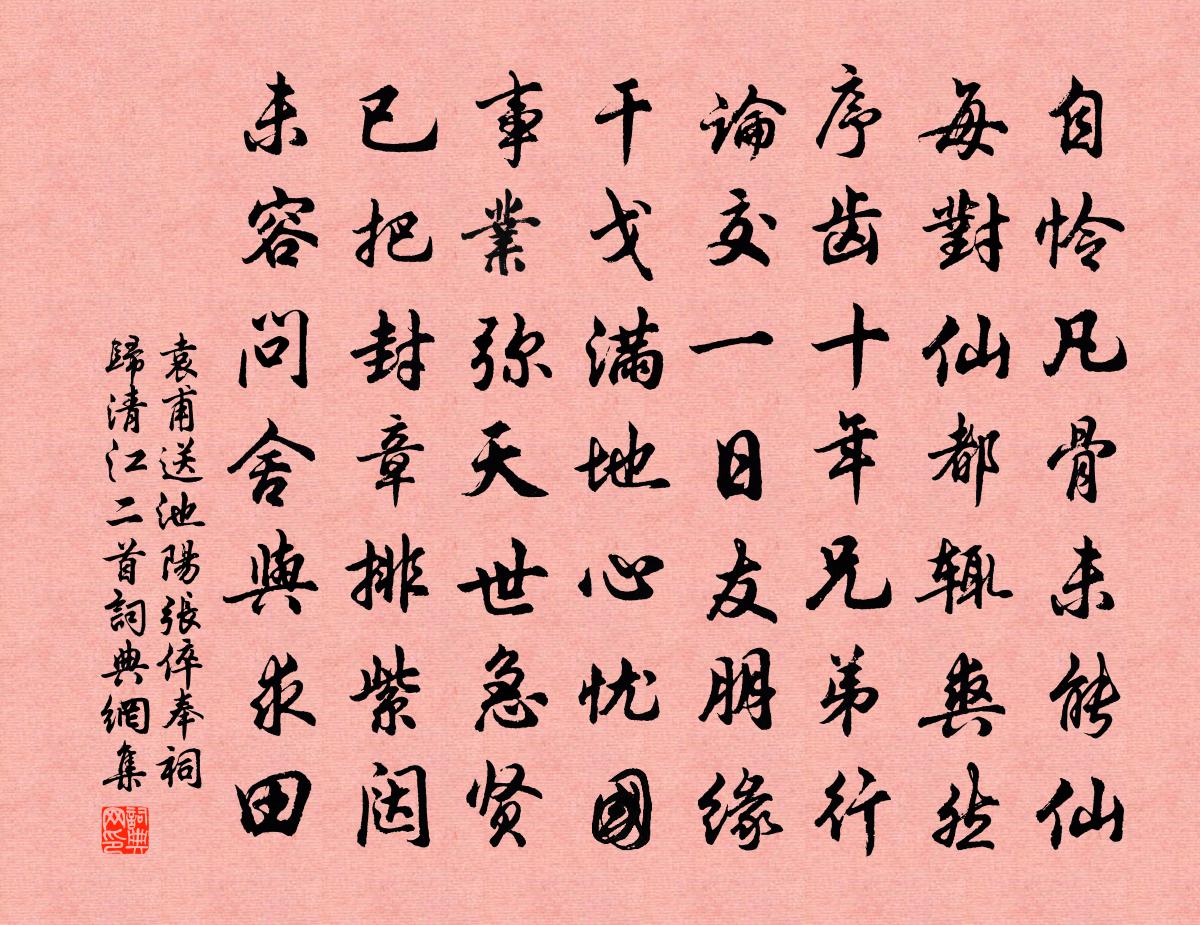 自怜凡骨未能仙
每對仙都辄爽然
序齿十年兄弟行
論交一日友朋缘
干戈滿地心忧國
事業弥天世急贤
已把封章排紫闼
未容問舍與求田
袁甫送池陽張倅奉祠
歸清江二首詞典網集
詞典网印